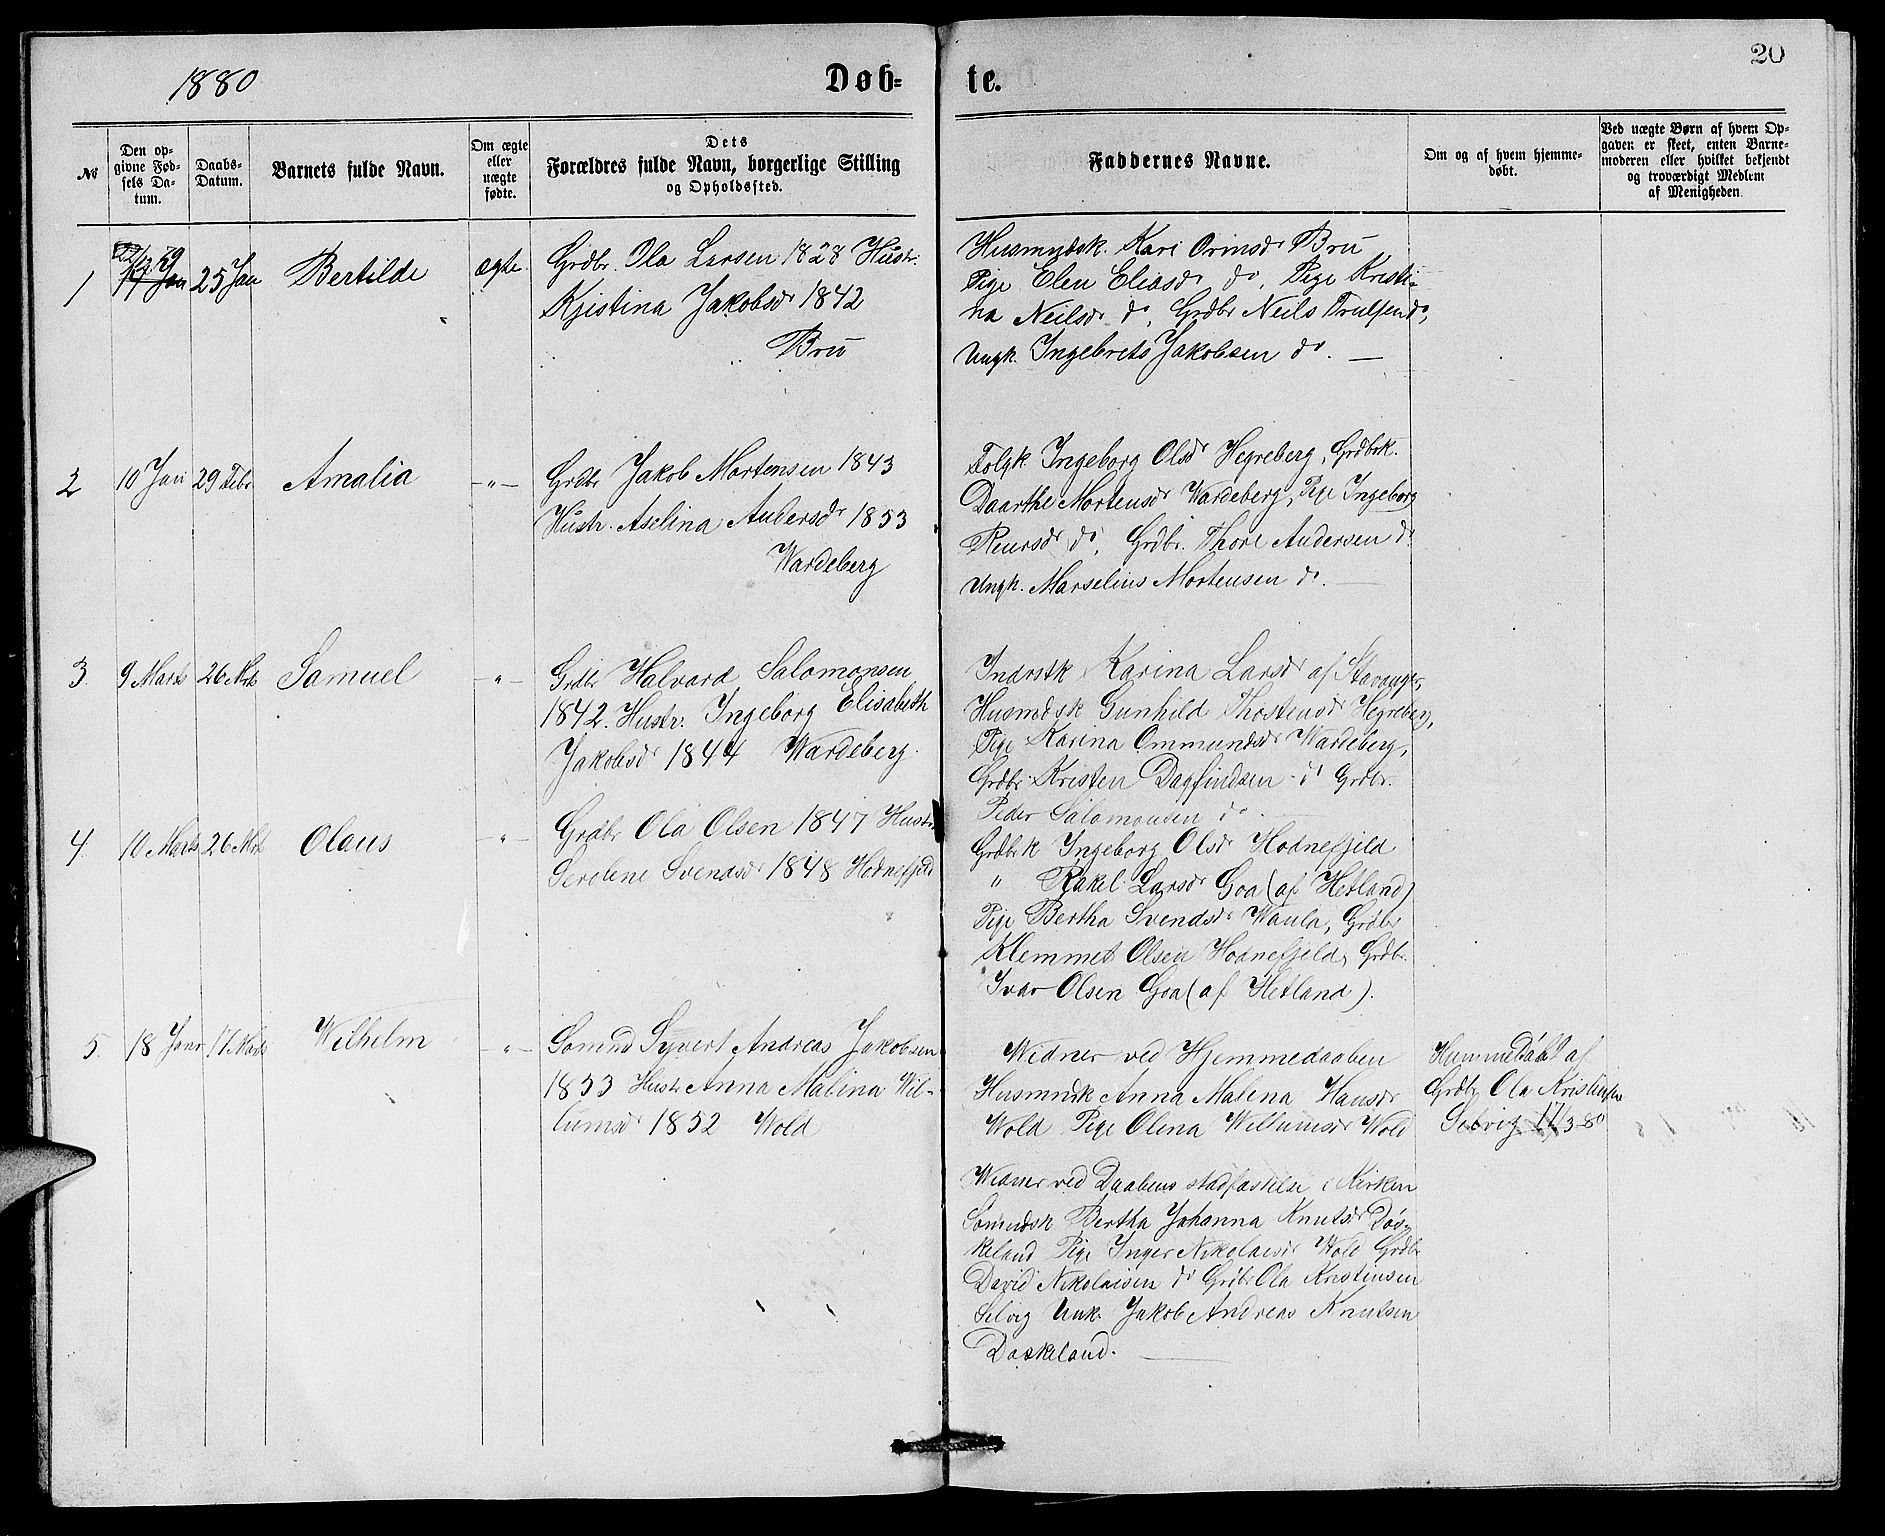 1880
Døb=
te.
20
№
Den op-
givne Fød-
sels Da-
tum.
Daabs-
Datum.
Barnets fulde Navn.
Om ægte
eller
uægte
fødte.
Dets
Forældres fulde Navn, borgerlige Stilling
og Opholdssted.
Faddernes Navne.
Om og af hvem hjemme-
døbt.
Ved uægte Børn af hvem Op-
gaven er skeet, enten Barne-
moderen eller hvilket bekjendt
og troværdigt Medlem
af Menigheden.
1
25 Jan
Bertilde
ægte
Grdbr. Ola Larsen 1828 Hustr.
Kjistina Jakobsdr 1842
Bru
Husmndsk. Kari Ormsdr Bru
Pige Elen Eliasdr do, Pige Kristi-
na Neilsdr do, Grdbr Neils Trulsen do,
Ungk. Ingebret Jakobsen do. —
2
10 Jan
29 Febr
Amalia
-"-
Grdbr Jakob Mortensen 1843
Hustr. Aselina Andersdr 1853
Wardeberg
Folgk. Ingeborg Olsdr Hegreberg, Grdbrk.
Daarthe Mortensdr Wardeberg, Pige Ingeborg
do, Grdbr. Thore Andersen do
Ungk. Marselius Mortensen do. —
3.
9 Marts
26 Mrts
Samuel
-"-
Grdbr Halvard Salomonsen
1842. Hustr. Ingeborg Elisabeth
Jakobsdr 1844 Wardeberg.
Karina Larsdr af Stavanger,
Husmdsk Gunhild Thostensdr Hegreberg,
Pige Karina Ommundsdr Wardeberg,
Grdbr. Kristen Dagfindsen do Grdbr.
Peder Salomonsen do
4.
10 Marts
26 Mrts
Olaus
-"-
Grdbr Ola Olsen 1847 Hustr.
Serolene Svendsdr 1848 Hodnefjeld
Grdbrk Ingeborg Olsdr Hodnefjeld
" Rakel Larsdr Goa (af Hetland)
Pige Bertha Svendsdr Waula, Grdbr
Klemmet Olsen Hodnefjeld, Grdbr.
Ivar Olsen Goa (af Hetland).
5.
18 Janr
17 Marts
Wilhelm
-"-
Somnd Syvert Andreas Jakobsen
1853 Hustr Anna Malina Wil-
lumsdr 1852 Wold
Widner ved Hjemmedaaben
Husmndk Anna Malena Hansdr
Wold Pige Olena Willumsdr Wold
Widner ved Daabens stadfæstelse i Kirken
Somndsk Bertha Johanna Knutsdr Døs-
keland Pige Inger Nikolaisdr Wold Grdbr
David Nikolaisen do Grdbr Ola Kristensen
Selvig Unk. Jakob Andreas Knutsen
Daskeland. —
Hjemmedøbt af
Grdbr Ola Kristensen
Selvig 17/3-80